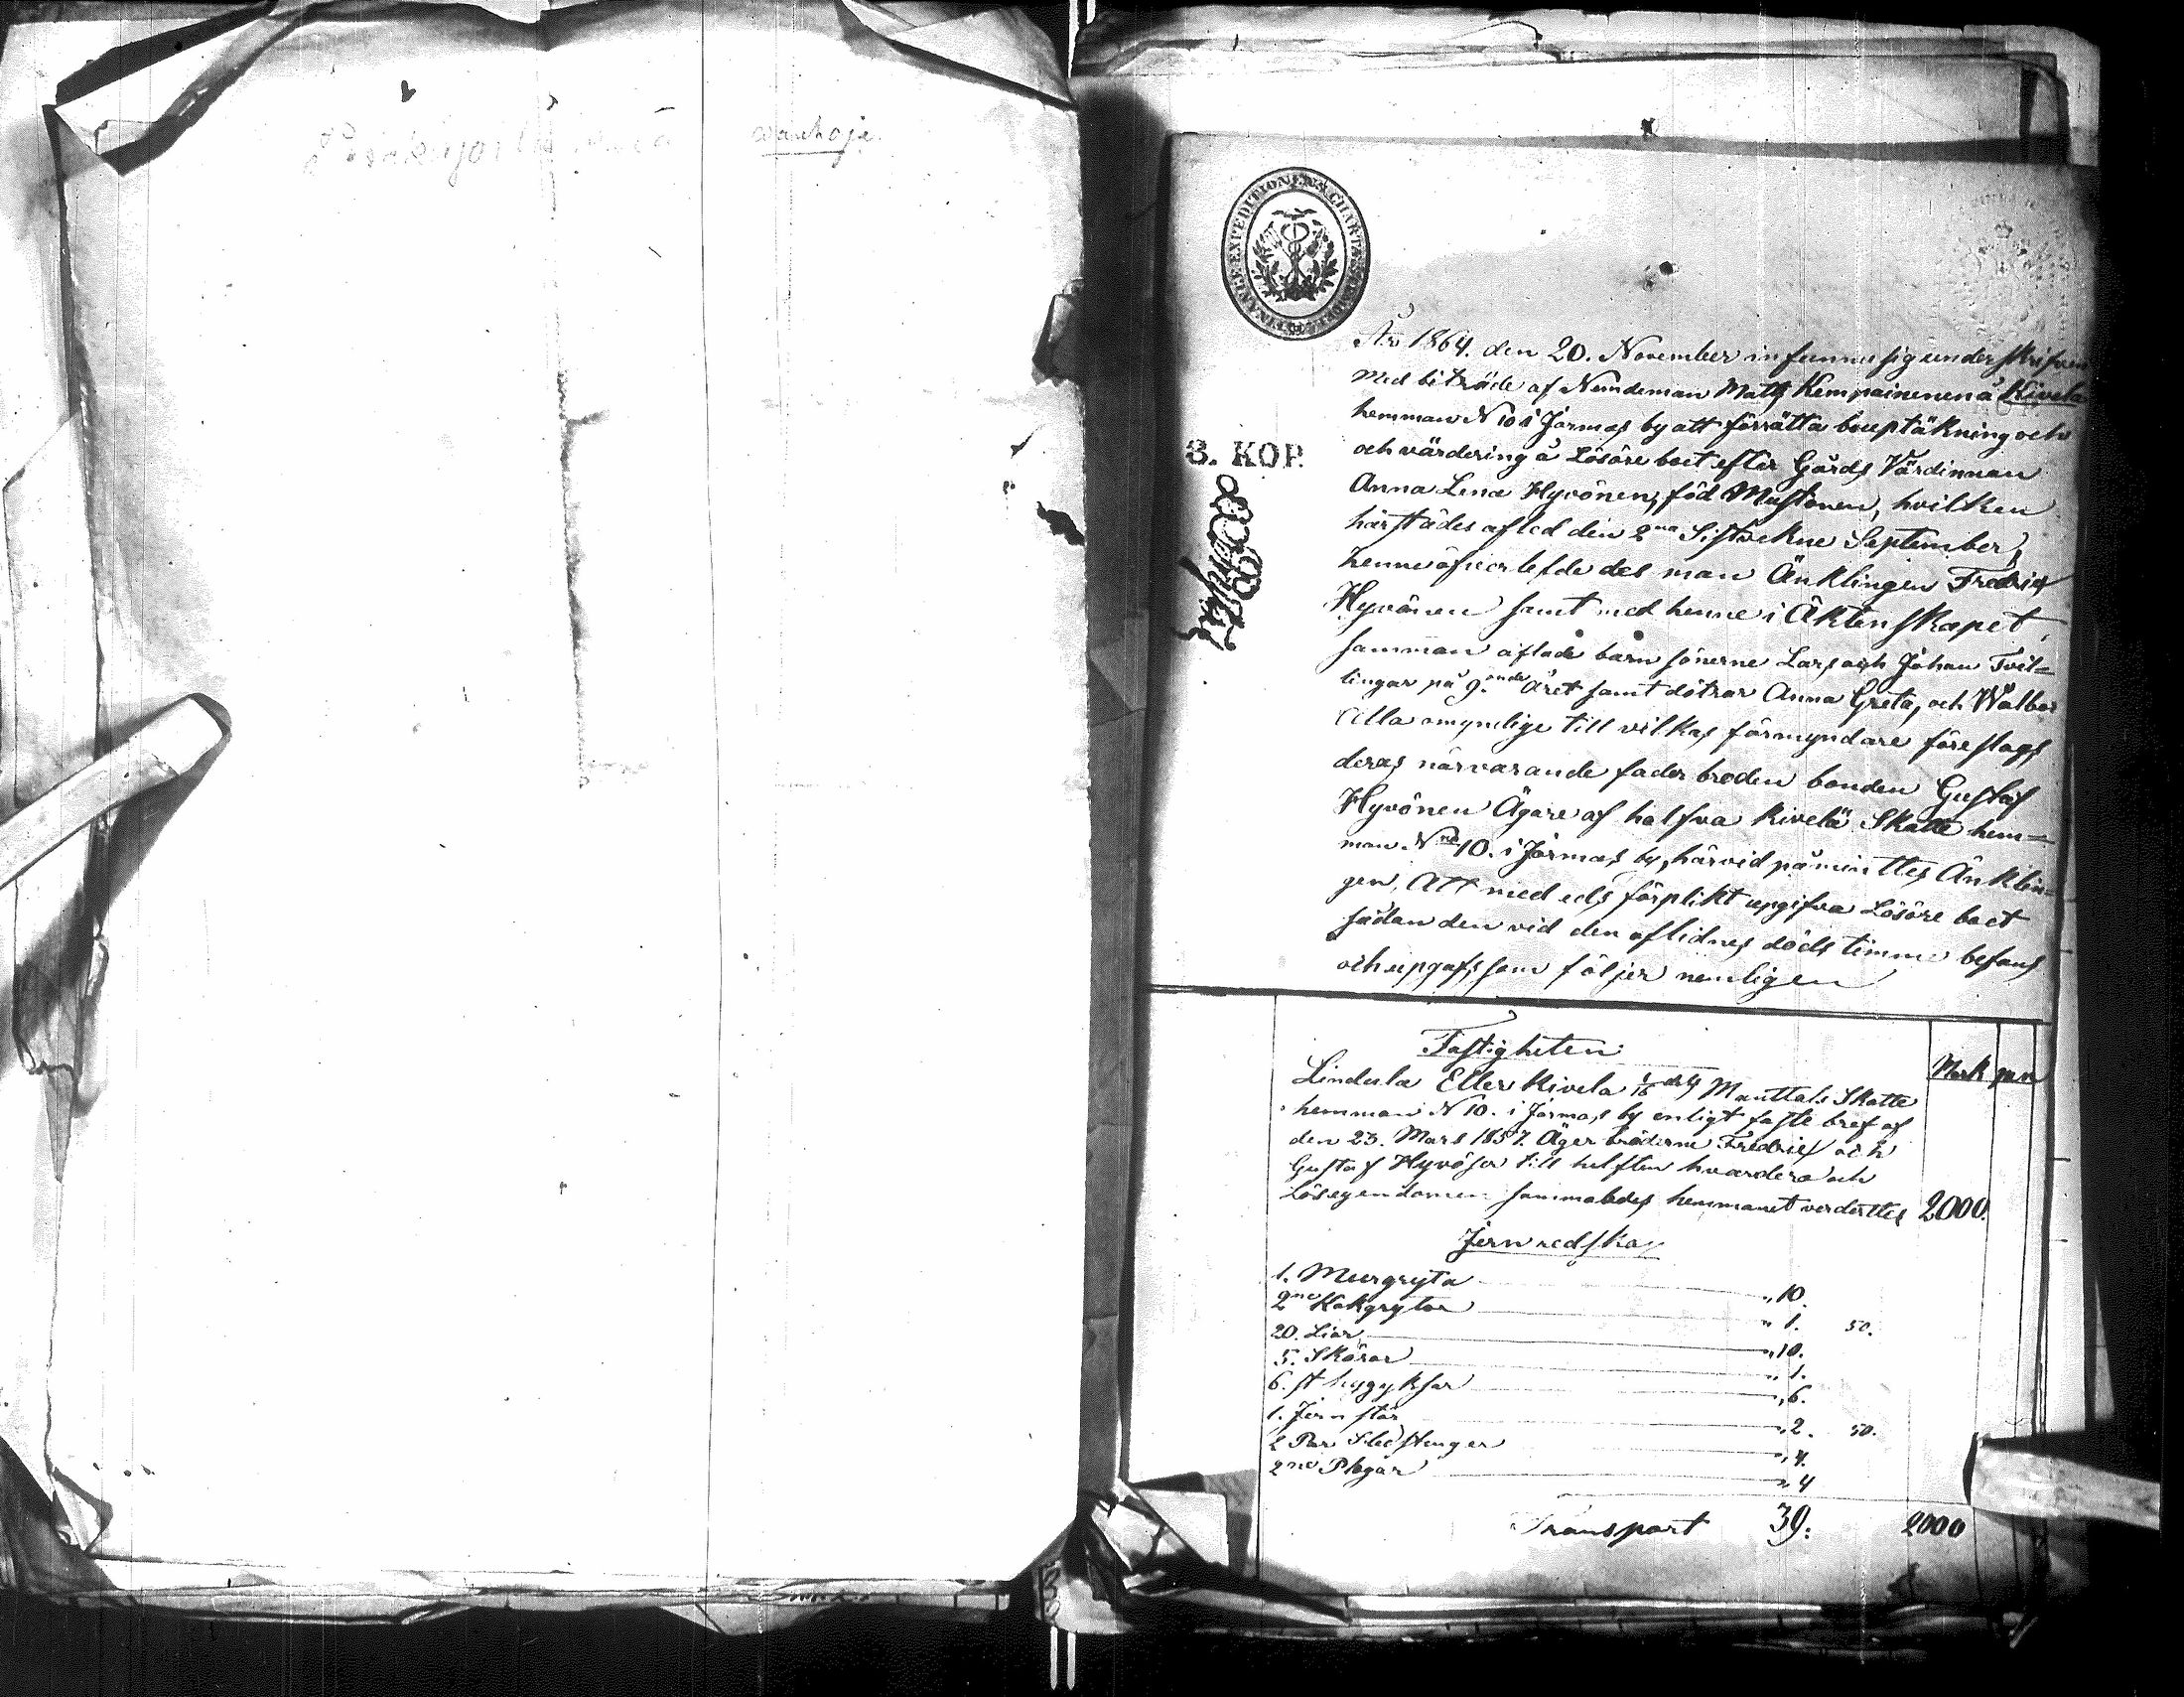 wanhoja
3. KOP.
År 1864. den 20. November infunno sig underskrifven
Med biträde af Nämdeman Matts Kempainenen å Kivela
hemman N 10 i Jormas by att förrätta bouptäkning och
och värdering å Lösöre boet efter Gårds Värdinnan
Anna Lena Hyvönen, föd Mustonen, hvilken
härstädes afled den 2na Sistvekne September,
henne öfverlefde des man Änklingen Fredrig
Hyvönen samt med henne i Äktenskapet
samman aflade barn sönerne Lars och Johan Tvil=
lingar på 9:onde Året samt dötrar Anna Greta, och Walbor
Alla omyndige till vilkas förmyndare föreslogs
deras närvarande fader broden bonden Gustaf
Hyvönen Ägare af halfva Kivelä Skatte hem=
man N 10. i Jormas by, härvid påminttes Änklin=
gen, Att med eds förplikt upgifva Lösöre boet
sådan den vid den aflidnes döds timme befans
och upgafs som följer nemligen
Fastigheten:
Mark pen
Lindula Eller Kivela 1/16 dels Manttals Skatte
hemman N 10. i Jormas by enligt faste bref af
den 23. Mars 1857. Äger bröderne Fredrig och
Gustaf Hyvöser till helften hvardera och
Lösegendomen sammaledes hemmanet verderttes 2000.
Jern redskap
1. Murgryta „ 10.
2ne Kokgrytor „ 1. 50.
20. Liar „ 10.
5. Skäror „ 1.
6. st hygyksar „ 6.
1. Jern stör „ 2. 50.
2 Par Sled stenger „ 4.
2ne Plogar „ 4
Transport 39: 2000